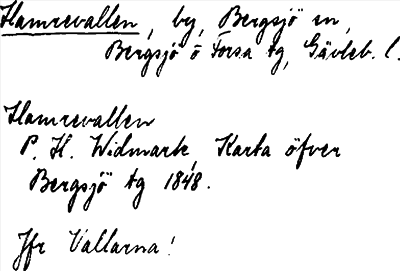 Hamrevallen, by, Bergsjö sn,
Bergsjö o Forsa tg, Gävleb. l.
Hamrevallen
P. H. Widmark, Karta öfver
Bergsjö tg 1848.
Jfr Vallarna!